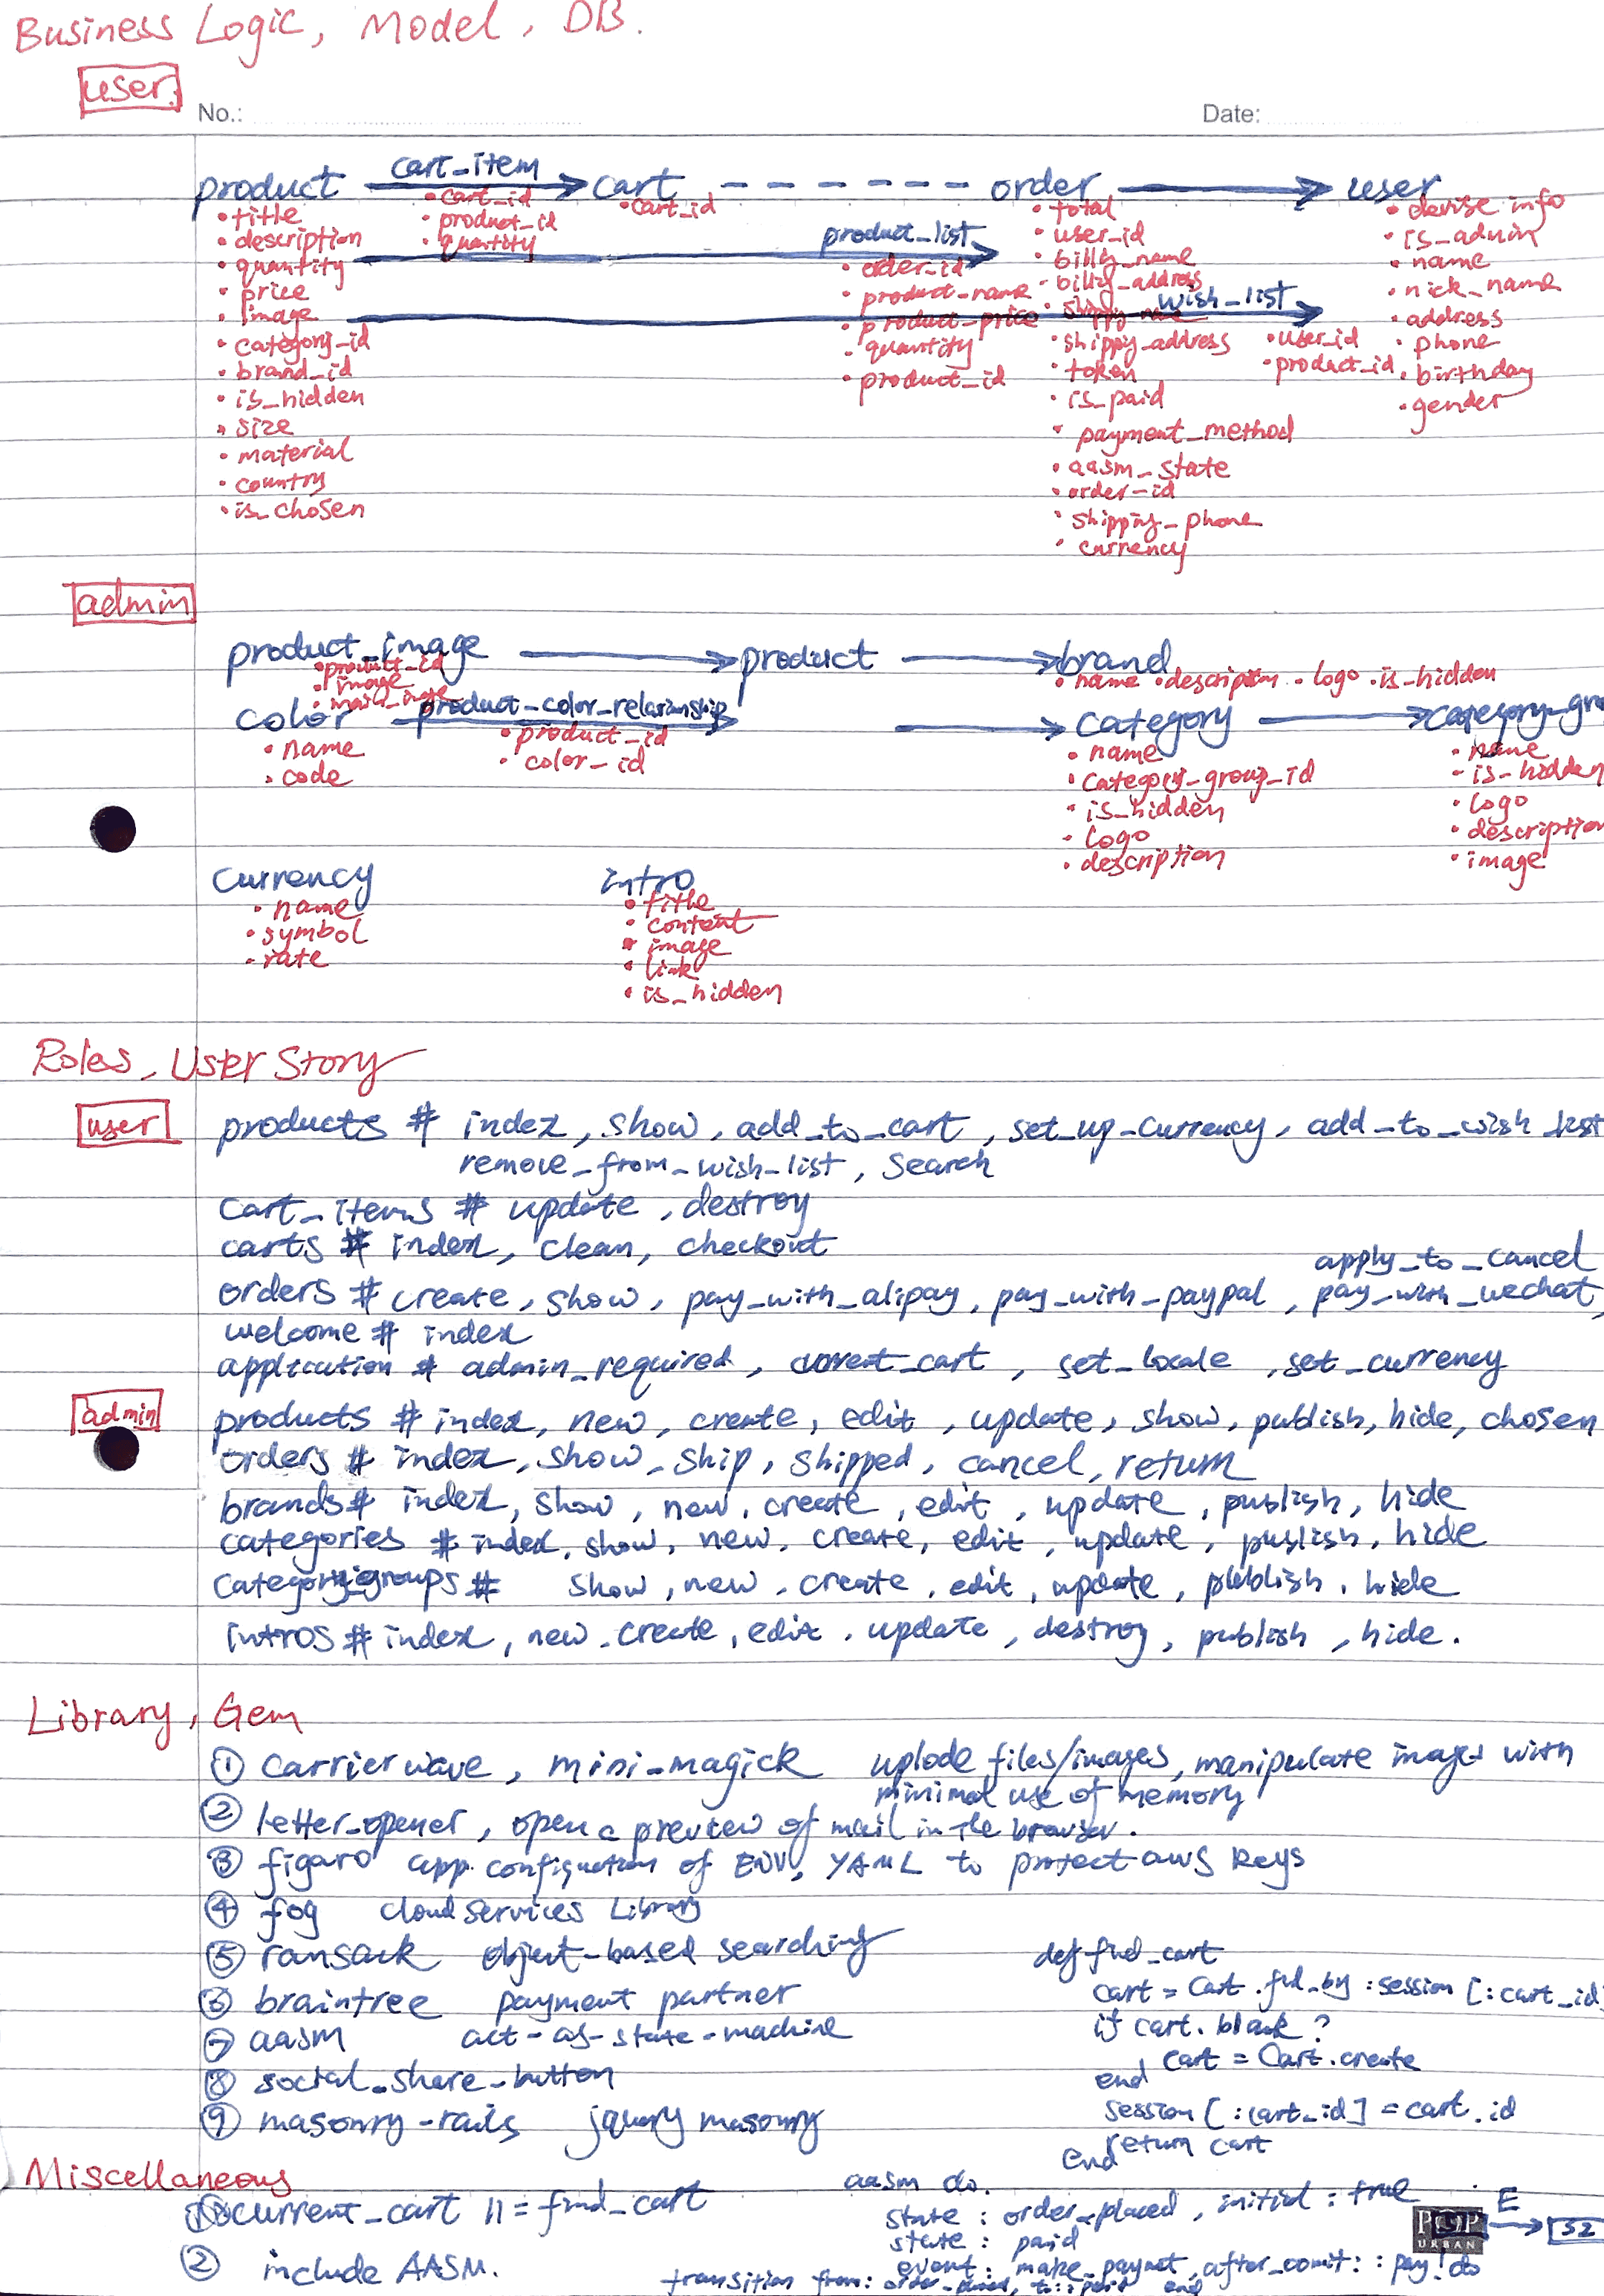 Business Logic, Model, DB.
user
No.: Date:
product cart_item cart order user
• title
• description
• quantity
• price
• image
• category_id
• brand_id
• is_hidden
• size
• material
• country
• is_chosen
• cart_id
• product_id
• quantity
• cart_id
product_list
• order_id
• product_name
• product_price
• quantity
• product_id
• total
• user_id
• billy_name
• billy_address
• shippy_name
• shippy_address
• token
• is_paid
• payment_method
• aasm_state
• order_id
• shipping_phone
• currency
wish_list
• user_id
• product_id
• devise info
• is_admin
• name
• nick_name
• address
• phone
• birthday
• gender
admin
product_image product brand
• product_id
• image
• name • description • logo • is_hidden
color product_color_relationship category category_gro
• name
• code
• product_id
• color_id
• name
• category_group_id
• is_hidden
• logo
• description
• name
• is_hidden
• logo
• description
• image
currency intro
• name
• symbol
• rate
• title
• content
• image
• link
• is_hidden
Roles, User Story
user
products # index, show, add_to_cart, set_up_currency, add_to_wish_list
remove_from_wish_list, search
cart_items # update, destroy
carts # index, clean, checkout
apply_to_cancel
orders # create, show, pay_with_alipay, pay_with_paypal, pay_with_wechat,
welcome # index
application # admin_required, current_cart, set_locale, set_currency
admin
products # index, new, create, edit, update, show, publish, hide, chosen
orders # index, show, ship, shipped, cancel, return
brands # index, show, new, create, edit, update, publish, hide
categories # index, show, new, create, edit, update, publish, hide
category_groups # show, new, create, edit, update, publish, hide
intros # index, new, create, edit, update, destroy, publish, hide.
Library, Gem
① carrierwave, mini-magick uplode files/images, manipulate images with
minimal use of memory
② letter_opener, open a preview of mail in the browser.
③ figaro app configuration of ENV, YAML to protect aws keys
④ fog cloud services Library
⑤ ransack object-based searching
⑥ braintree payment partner
⑦ aasm act-as-state-machine
⑧ social_share_button
⑨ masonry-rails jquery masonry
def find_cart
cart = Cart.find_by :session [:cart_id]
if cart.blank?
cart = Cart.create
end
session [:cart_id] = cart.id
return cart
end
Miscellaneous
① current_cart ||= find_cart
② include AASM.
aasm do.
state : order_placed, initial : true
state : paid
event : make_paymet, after_comit: : pay! do
transition from: order_placed, to: : paid end
E
POP
URBAN
52